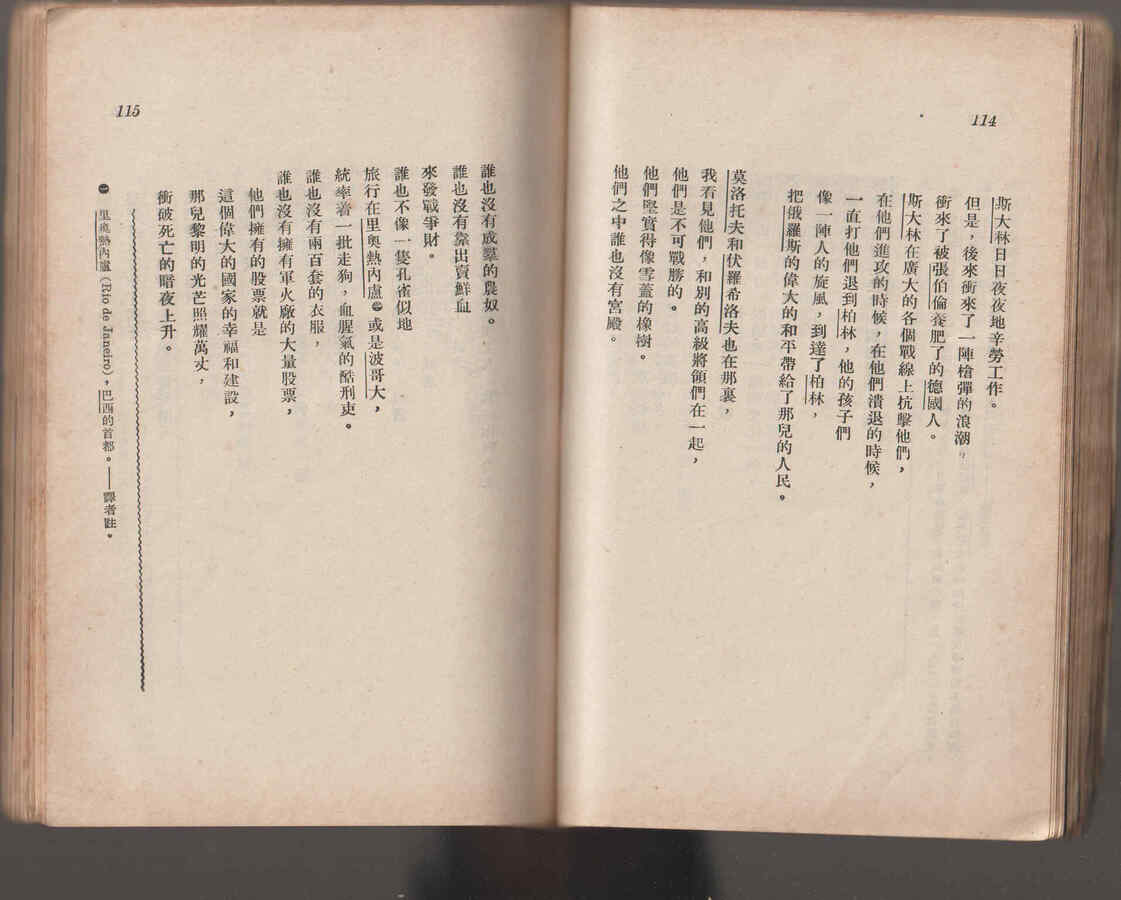 114
斯大林日日夜夜地辛勞工作。
但是，後來衝來了一陣槍彈的浪潮，
衝來了被張伯倫養肥了的德國人。
斯大林在廣大的各個戰線上抗擊他們，
在他們進攻的時候，在他們潰退的時候，
一直打他們退到柏林，他的孩子們
像一陣人的旋風，到達了柏林，
把俄羅斯的偉大的和平帶給了那兒的人民。
莫洛托夫和伏羅希洛夫也在那裏，
我看見他們，和別的高級將領們在一起，
他們是不可戰勝的。
他們堅實得像雪蓋的橡樹。
他們之中誰也沒有宮殿。
115
誰也沒有成羣的農奴。
誰也沒有靠出賣鮮血
來發戰爭財。
誰也不像一隻孔雀似地
旅行在里奧熱內盧㊀或是波哥大，
統率着一批走狗，血腥氣的酷刑吏。
誰也沒有兩百套的衣服，
誰也沒有擁有軍火廠的大量股票，
他們擁有的股票就是
這個偉大的國家的幸福和建設，
那兒黎明的光芒照耀萬丈，
衝破死亡的暗夜上升。
㊀ 里奧熱內盧（Rio de Janeiro），巴西的首都。——譯者註。